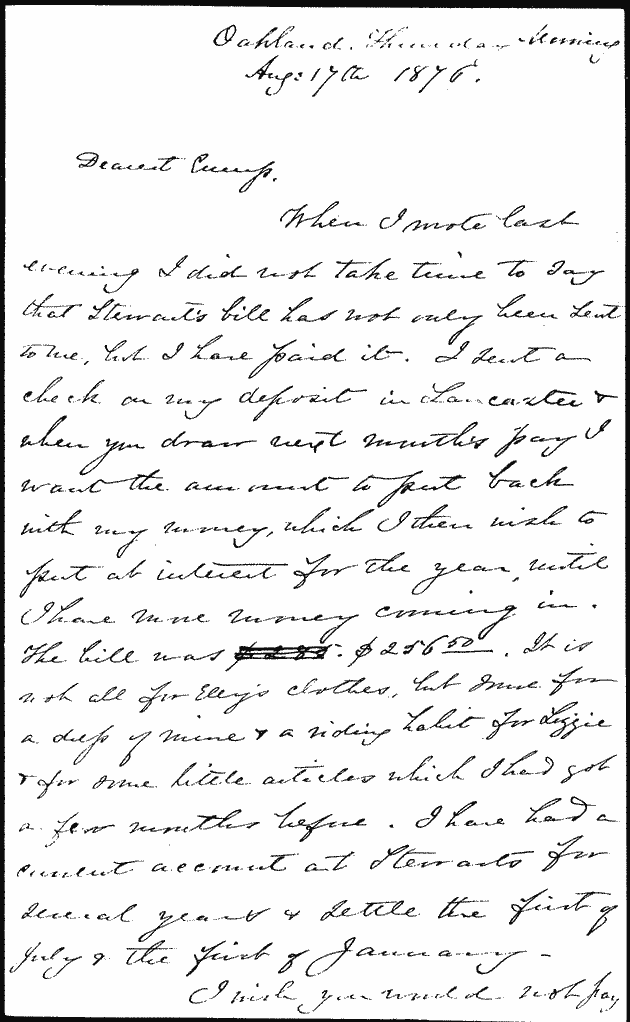 Oakland. Thursday Morning
Aug: 17th 1876.
Dearest Cump.
When I wrote last
evening I did not take time to say
that Stewart's bill has not only been sent
to me, but I have paid it. I sent a
check on my deposit in Lancaster &
when you draw next month's pay I
want the amount to put back
with my money, which I then wish to
put at interest for the year, until
I have more money coming in.
The bill was $285. $256 50. It is
not all for Elly's clothes, but some for
a dress of mine & a riding habit for Lizzie
& for some little articles which I had got
a few months before. I have had a
current account at Stewarts for
several years & settle the first of
July & the first of January -
I wish you would not pay